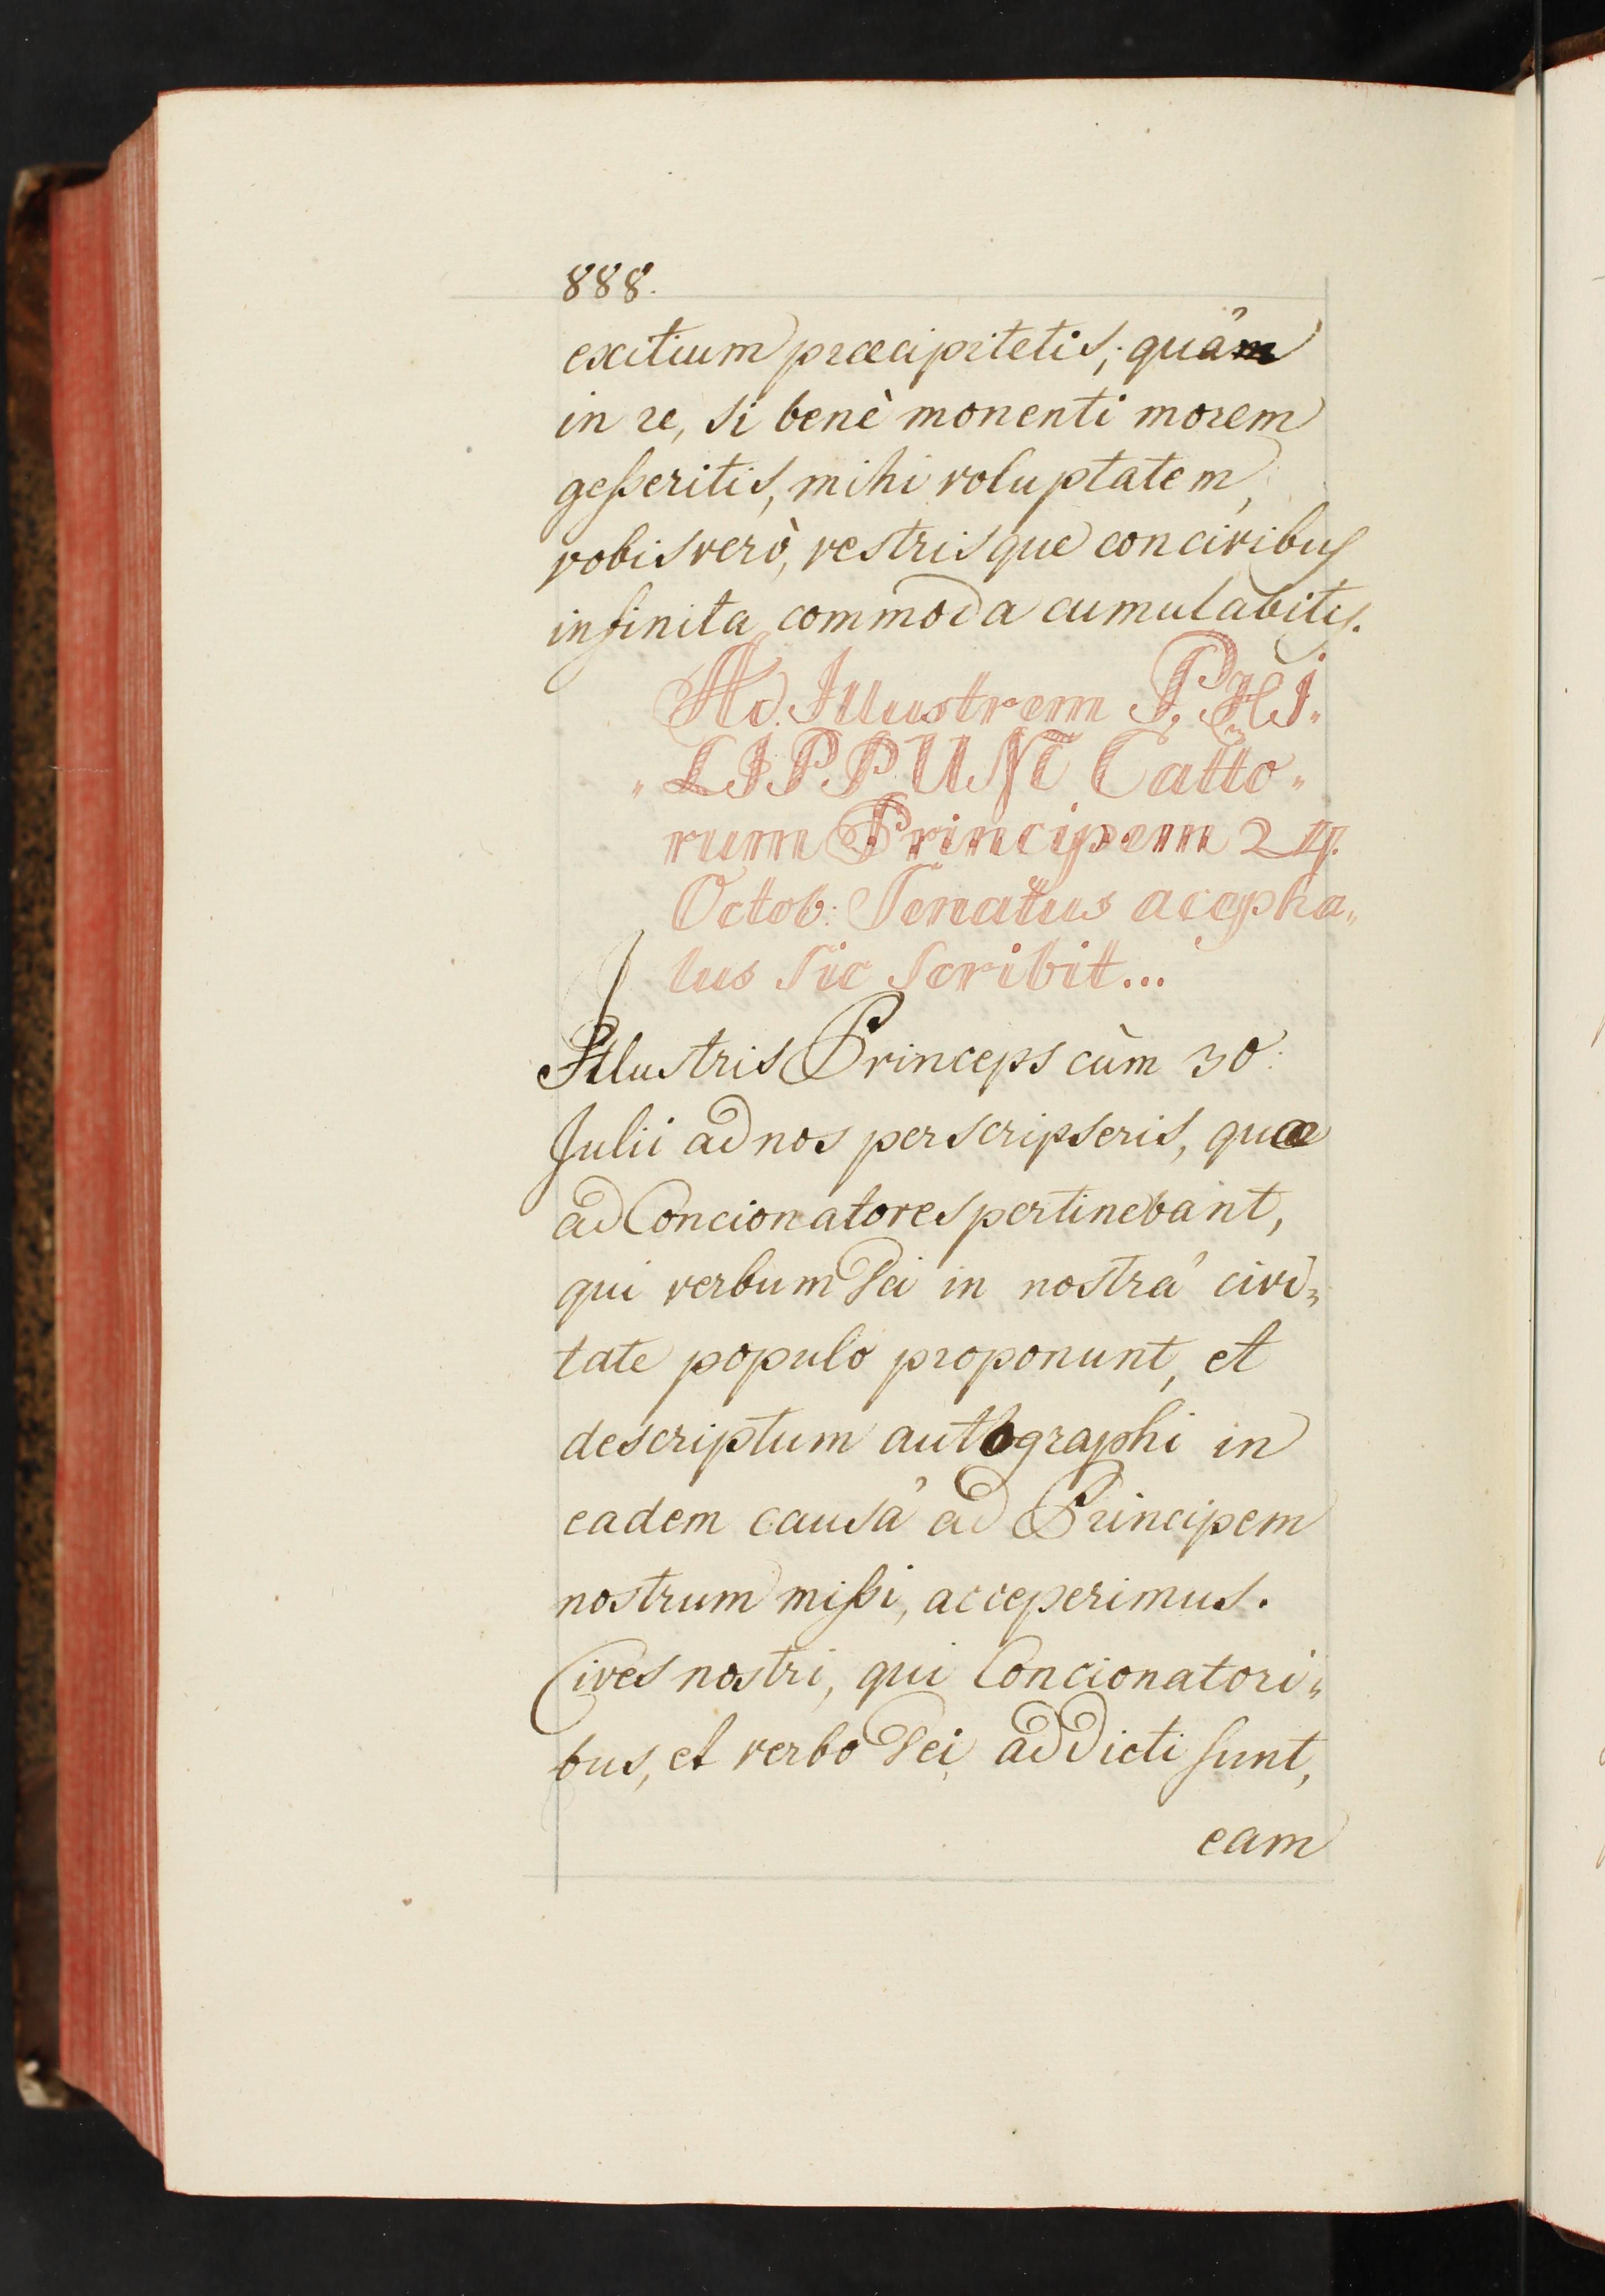 888.
exitium præcipitetis; quâm
in re, si benè monenti morem
geßeritis, mihi voluptatem,
vobis verò, vestrisque concivibus
infinita commoda cumulabitis.
Ad Illustrem PHI„
„LIPPUM Catto„
rum Principem 24.
Octob: Senatus acepha„
lus sic scribit...
Illustris Princeps cùm 30.
Julii ad nos perscripseris, quæ
ad Concionatores pertinebant,
qui verbum Dei in nostrâ civi„
tate populo proponunt, et
descriptum autographi in
eadem causâ ad Principem
nostrum mißi, acceperimus.
Cives nostri, qui Concionatori„
bus, et verbo Dei addicti sunt,
eam